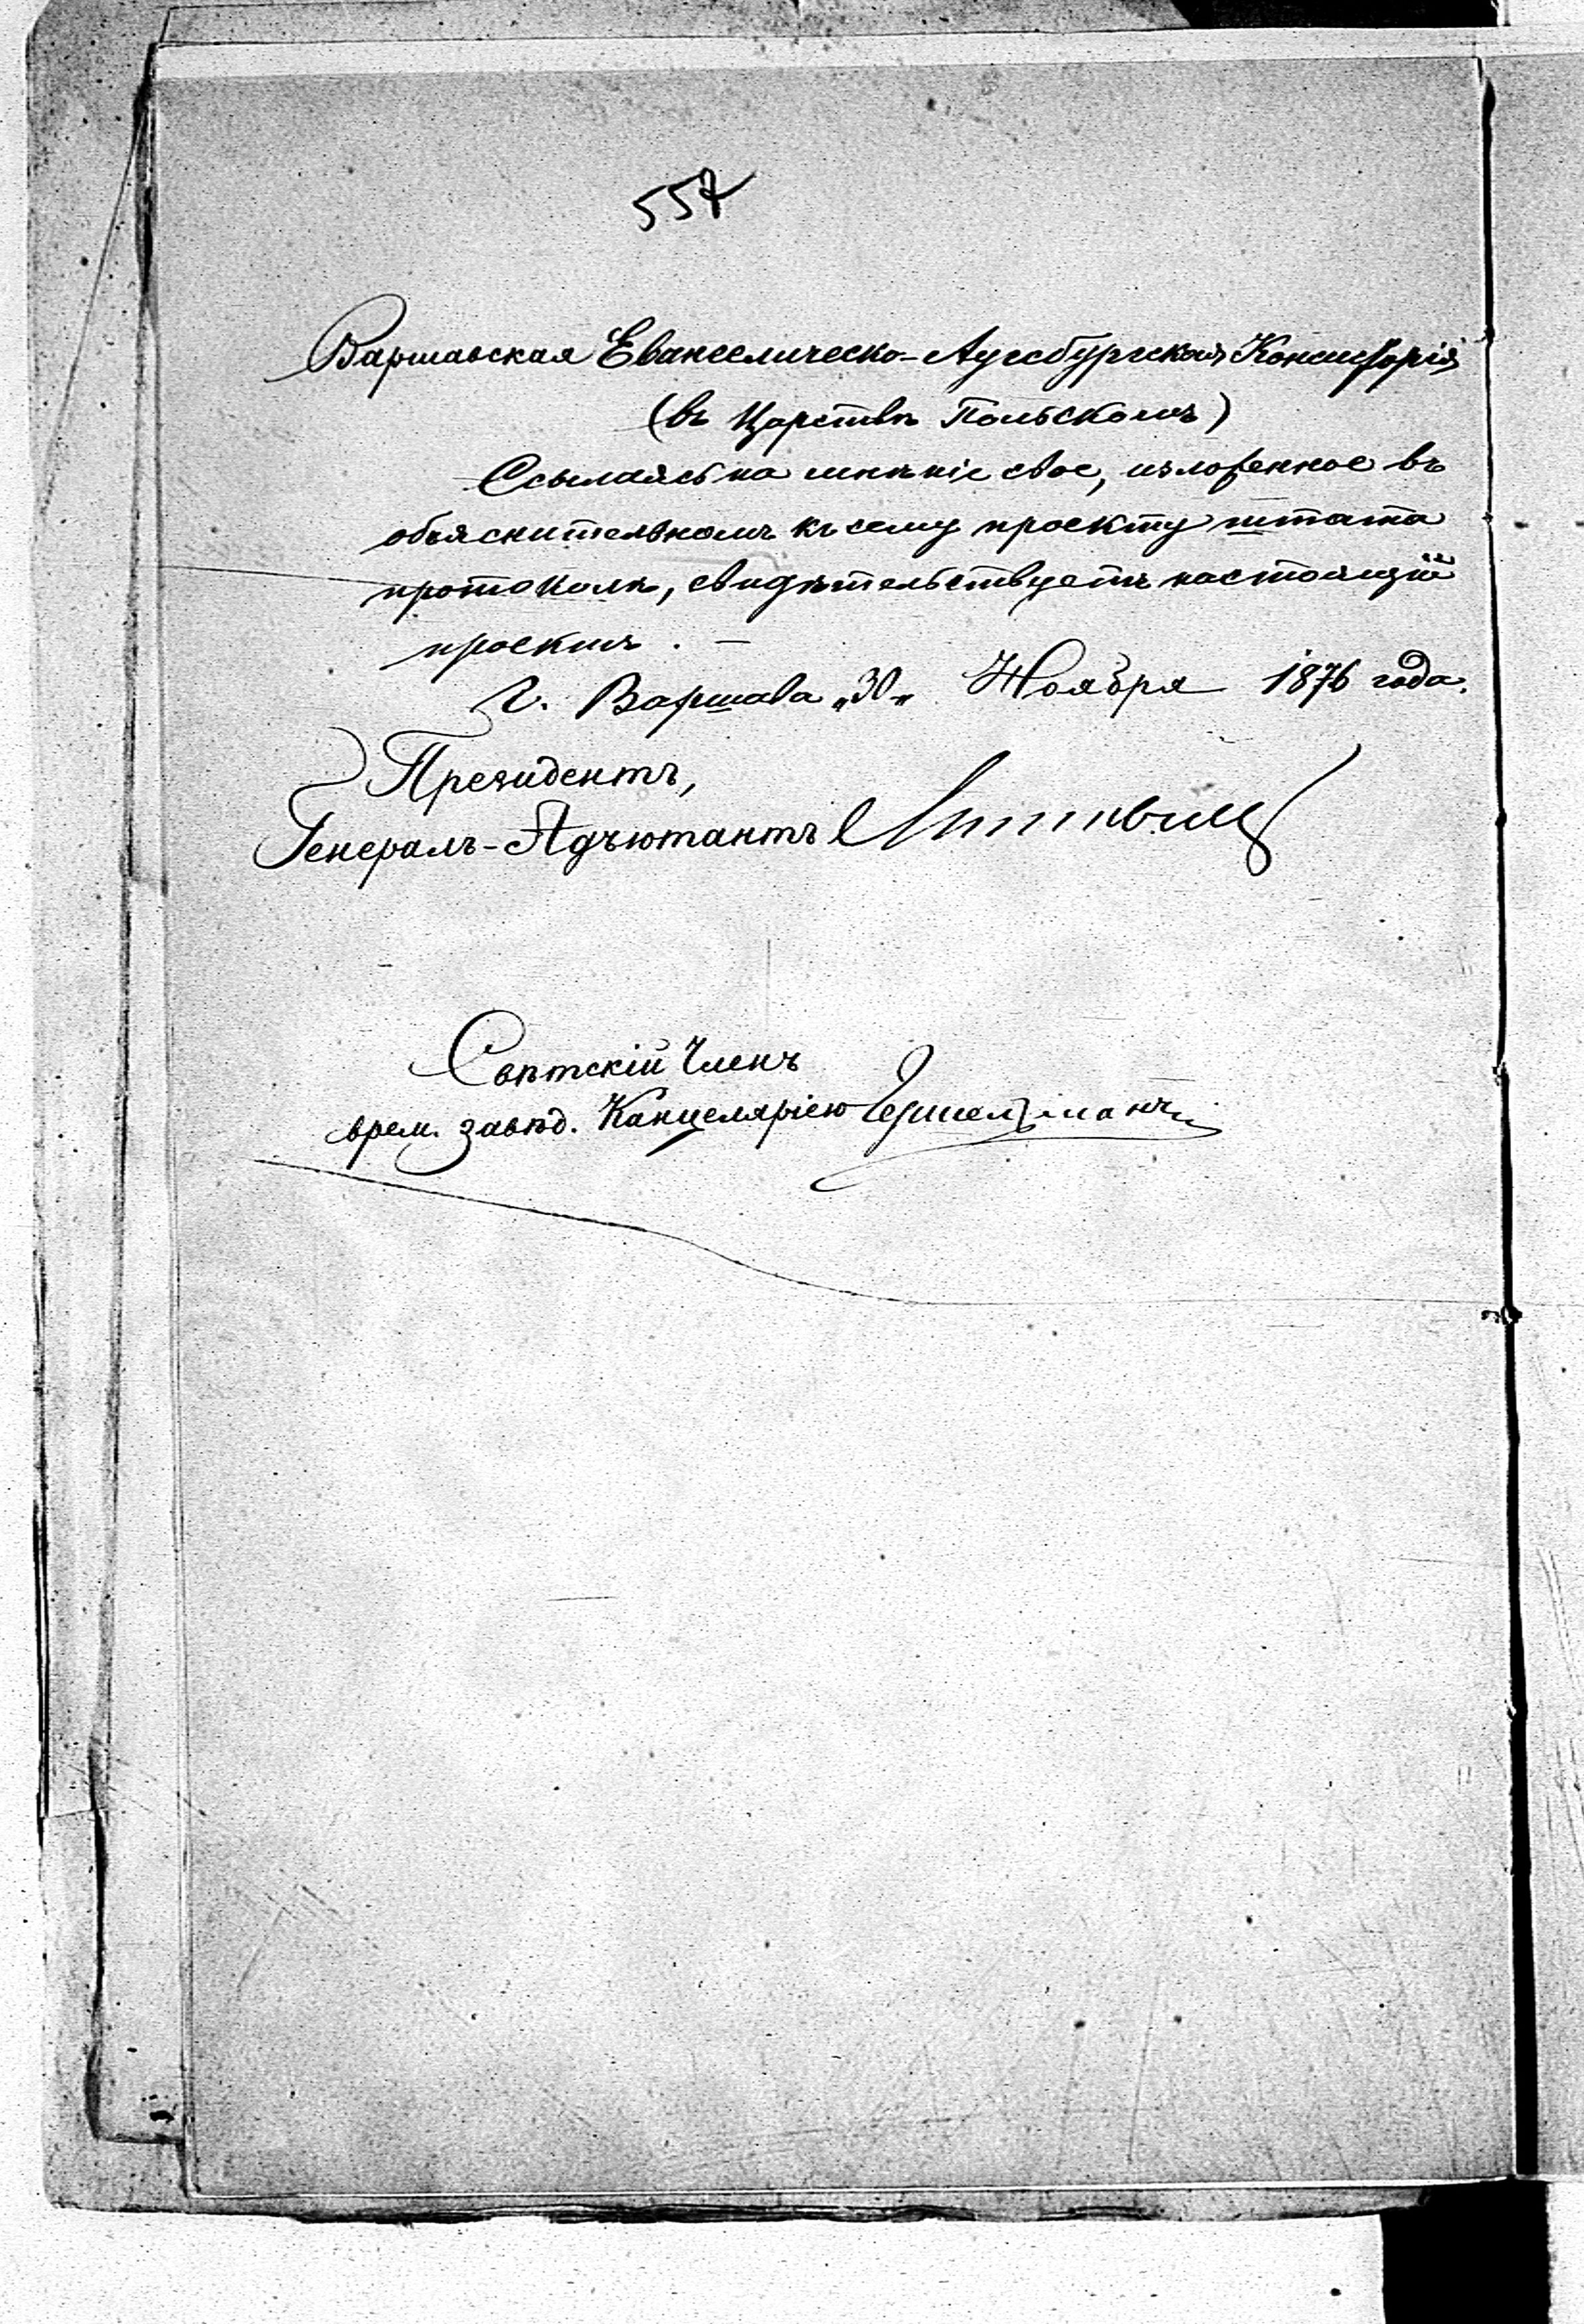 557
Варшавская Евангелическо-Аугсбургская Консисторія
(въ Царствѣ Польскомъ)
Ссылаясь на мнѣніе свое, изложенное въ
объяснительномъ къ сему проекту штата
протоколѣ, свидѣтельствуетъ настоящій
проектъ. —
г. Варшава „30„ Ноября 1876 года.
Президентъ,
Генералъ-Адъютантъ
Свѣтскій Членъ
врем. завѣд. Канцеляріею